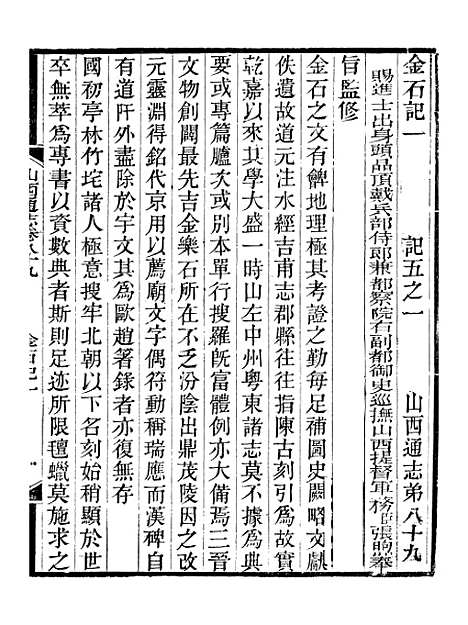 金石記一 記五之一 山西通志弟八十九
賜進士出身頭品頂戴兵部侍郎兼都察院右副都御史巡撫山西提督軍務臣張煦奉
旨監修
金石之文有裨地理極其考證之勤每足補圖史闕略文獻
佚遺故道元注水經吉甫志郡縣往往摭陳古刻引爲故實
乾嘉以來其學大盛一時山左中州粵東諸志莫不據爲典
要或專篇臚次或別本單行搜羅旣富體例亦大備焉三晉
文物創闢最先吉金樂石所在不乏汾陰出鼎茂陵因之改
元靈淵得銘代京用以薦廟文字偶符動稱瑞應而漢碑自
有道阡外盡除於宇文其爲歐趙箸錄者僅數無存
國初亭林竹垞諸人極意搜牢北朝以下名刻始稍顯於世
卒無萃爲專書以資數典者斯則足迹所限氊蠟莫施求之
山西通志卷八十九 金石記一 一